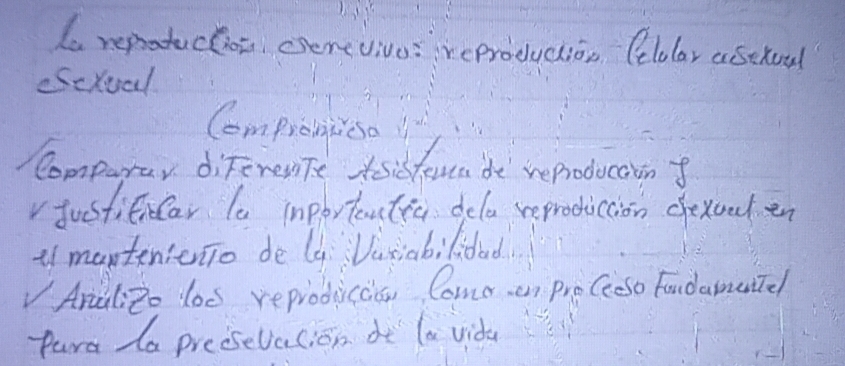 la reproduccion. seres vivos: reproducción Celular asexual
sexual
Compromiso
Comparar diferente sistema de reproducción y
✓ justificar la inportancia dela reproducción sexual en
el manteniento de la Variabilidad
✓ Analizo los reproduccion Como un proceso fundamental
para la presevación de la vida